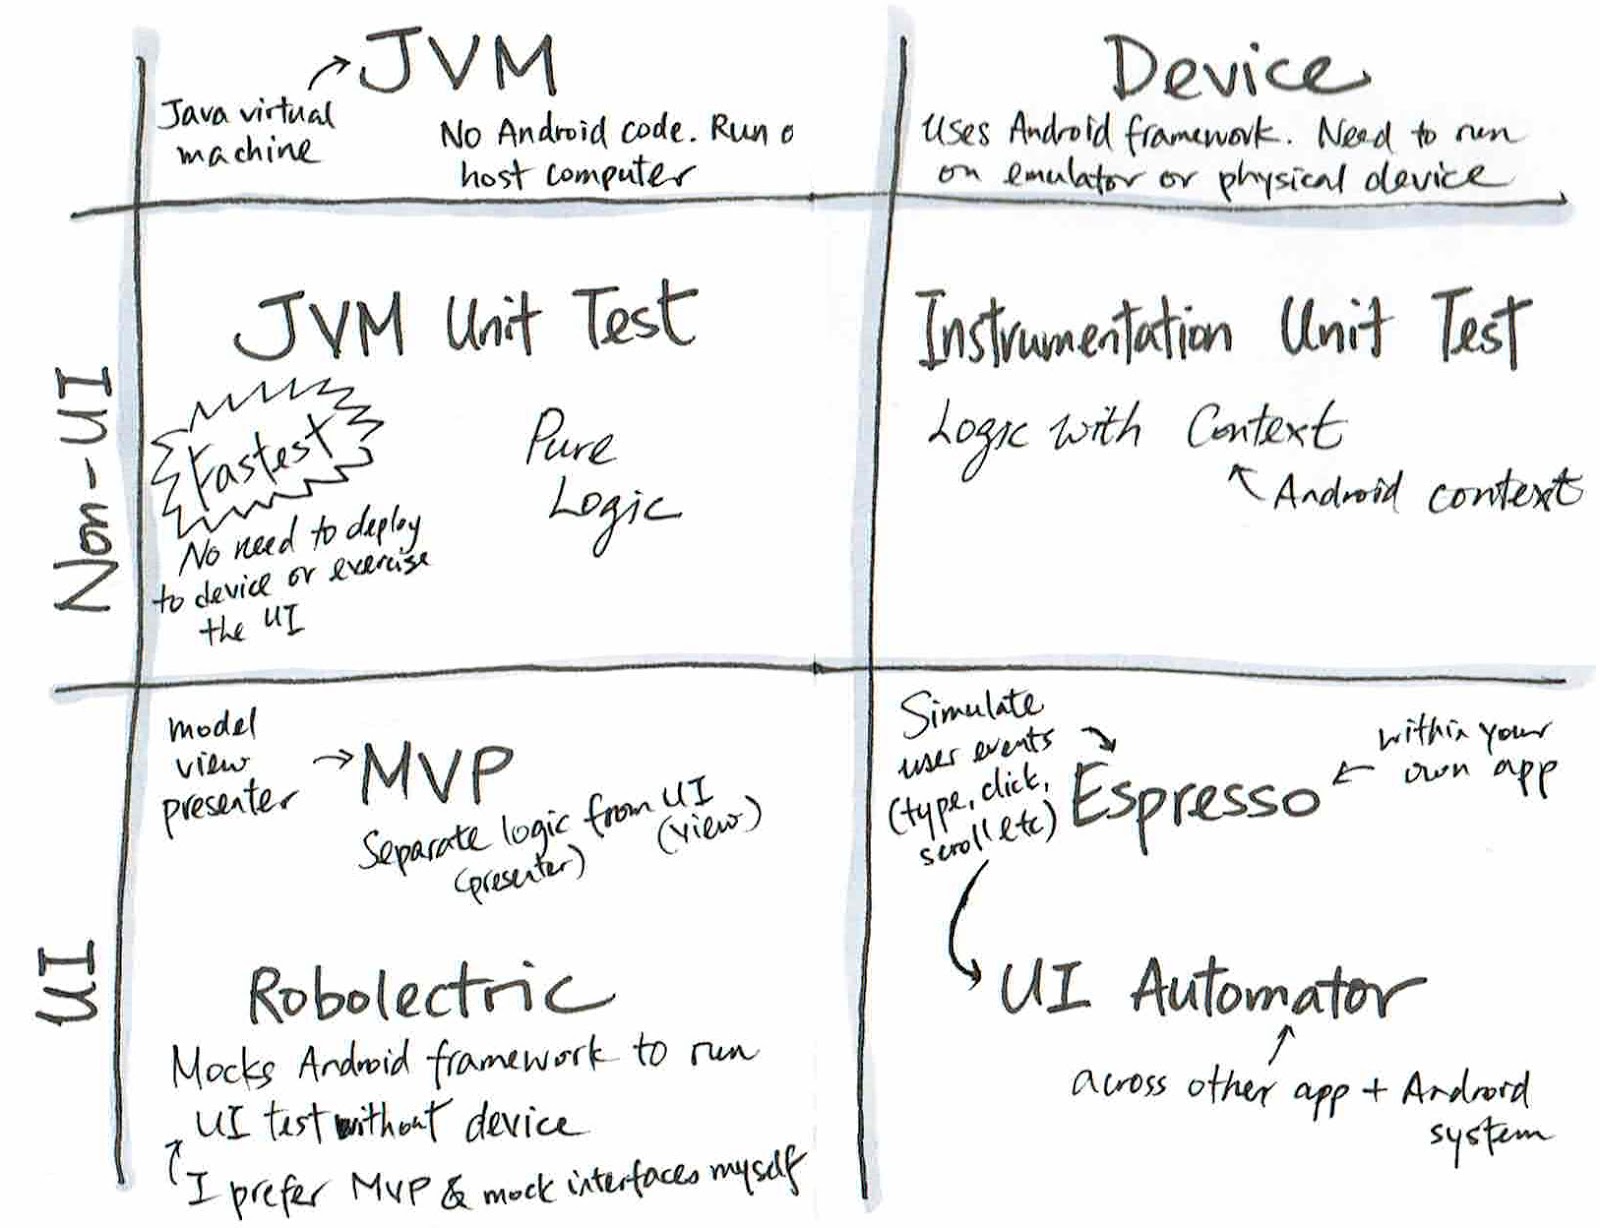 JVM
Java virtual
machine
No Android code. Run o
host computer
Device
Uses Android framework. Need to run
on emulator or physical device
Non-UI
JVM Unit Test
Fastest
No need to deploy
to device or exercise
the UI
Pure
Logic
Instrumentation Unit Test
Logic with Context
Android context
UI
model
view
presenter
MVP
Separate logic from UI
(presenter)
(view)
Robolectric
Mocks Android framework to run
UI test without device
I prefer MVP & mock interfaces myself
Simulate
user events
(type, click,
scroll etc)
Espresso
within your
own app
UI Automator
across other app + Android
system